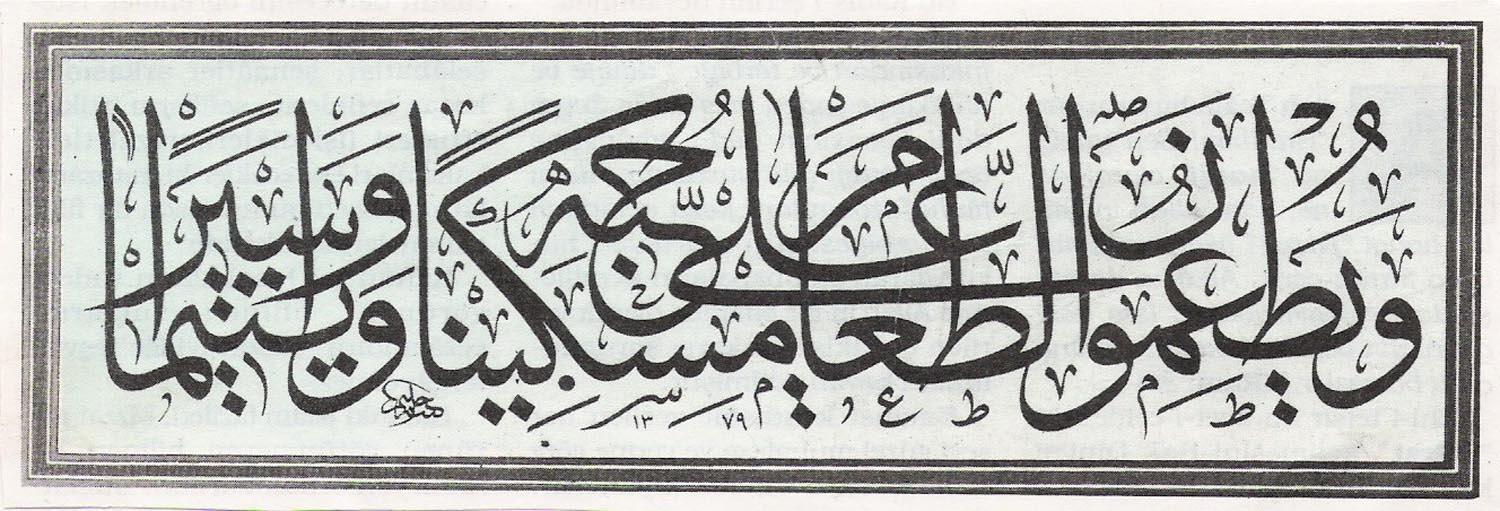 وَيُطْعِمُونَ الطَّعَامَ عَلَى حُبِّهِ مِسْكِينًا وَيَتِيمًا وَأَسِيرًا
١٣٧٩